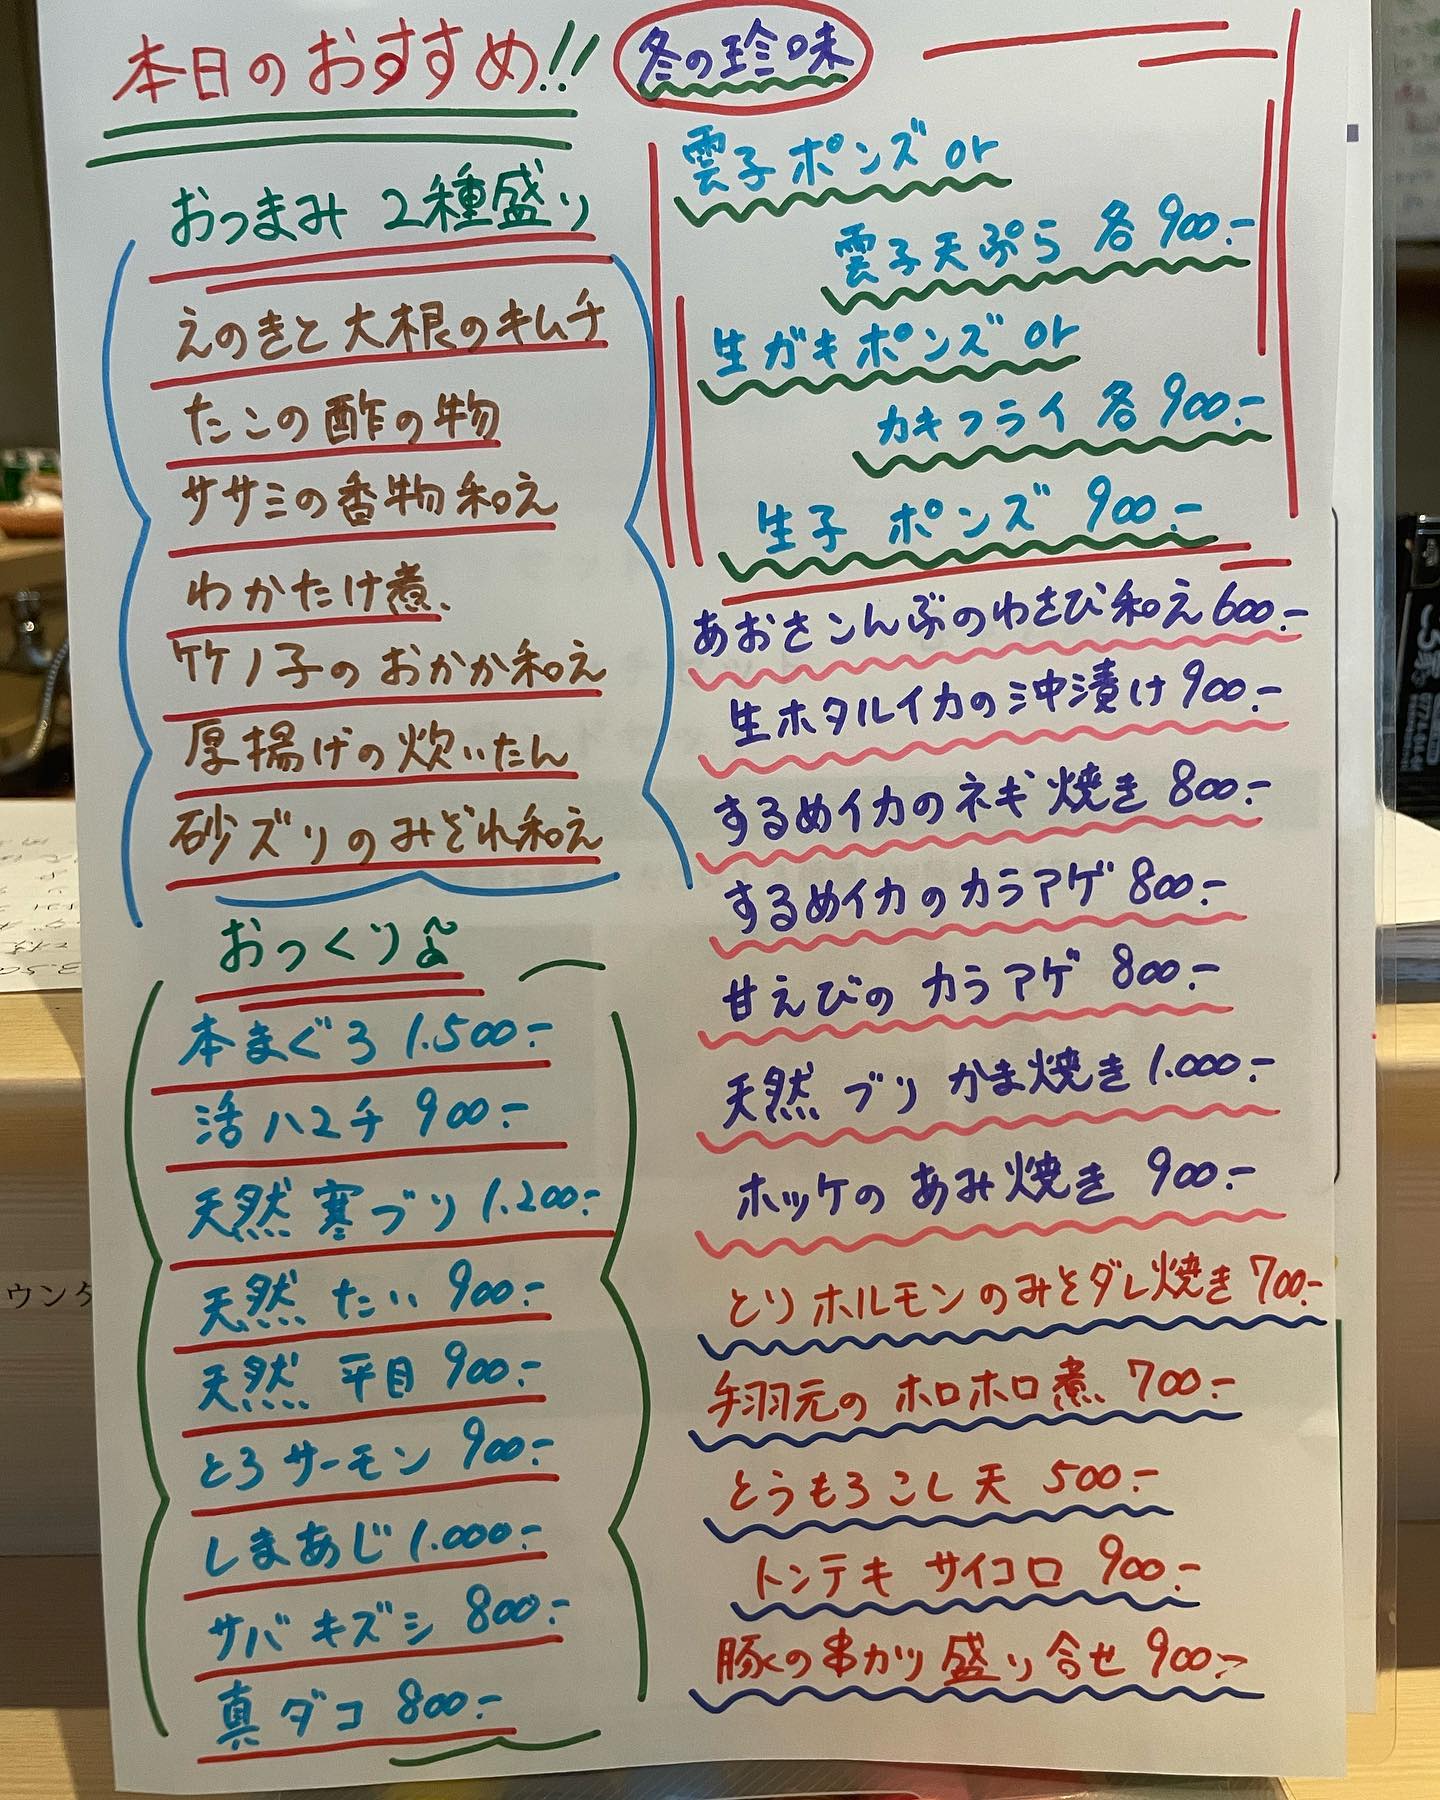 本日のおすすめ!!
おつまみ 2種盛り
えのきと大根のキムチ
たこの酢の物
ササミの香物和え
わかたけ煮
竹ノ子のおかか和え
厚揚げの炊いたん
砂ズリのみぞれ和え
おつくり
本まぐろ 1.500.-
活ハマチ 900.-
天然 寒ブリ 1.200.-
天然 たい 900.-
天然 平目 900.-
とろサーモン 900.-
しまあじ 1.000.-
サバキズシ 800.-
真ダコ 800.-
冬の珍味
雲子ポンズ or
雲子天ぷら 各900.-
生ガキポンズ or
カキフライ 各900.-
生子 ポンズ 900.-
あおさこんぶのわさび和え 600.-
生ホタルイカの沖漬け 900.-
するめイカのネギ焼き 800.-
するめイカのカラアゲ 800.-
甘えびのカラアゲ 800.-
天然 ブリ かま焼き 1.000.-
ホッケの あみ焼き 900.-
とりホルモンのみそダレ焼き 700.-
手羽元の ホロホロ煮 700.-
とうもろこし天 500.-
トンテキ サイコロ 900.-
豚の串カツ盛り合せ 900.-
ウンタ